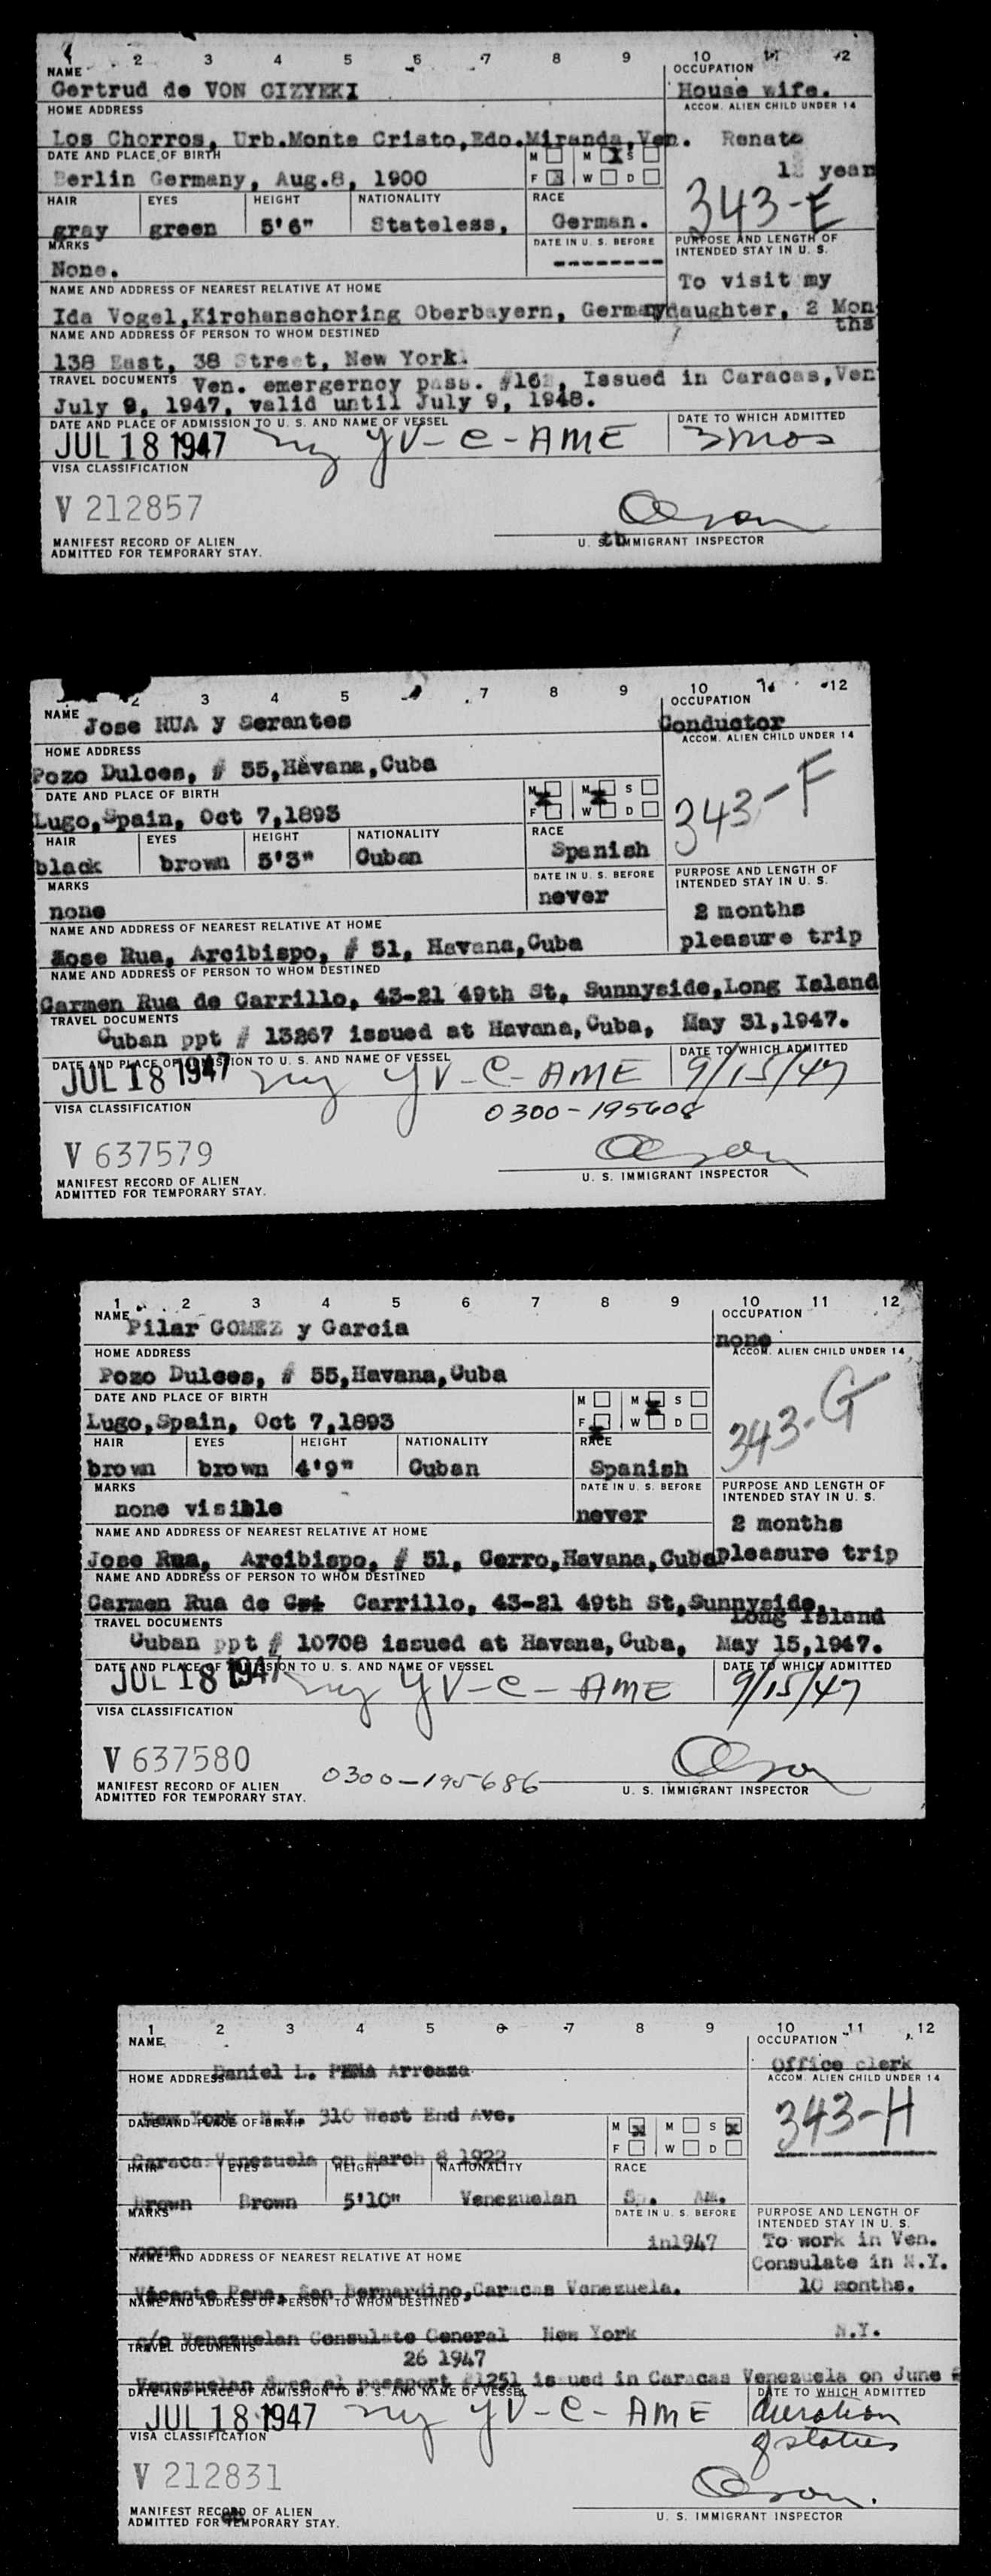 1 2 3 4 5 6 7 8 9 10 11 12
NAME OCCUPATION
Gertrud de VON GIZYEKI House wife.
HOME ADDRESS ACCOM. ALIEN CHILD UNDER 14
Los Chorros, Urb.Monte Cristo,Edo.Miranda,Ven. Renate
DATE AND PLACE OF BIRTH M M S
Berlin Germany, Aug.8, 1900 F W D year
HAIR EYES HEIGHT NATIONALITY RACE 343-E
gray green 5'6" Stateless, German.
MARKS DATE IN U. S. BEFORE PURPOSE AND LENGTH OF INTENDED STAY IN U. S.
None. --------
NAME AND ADDRESS OF NEAREST RELATIVE AT HOME To visit my
Ida Vogel,Kirchanschoring Oberbayern, Germany daughter, 2 Mon
NAME AND ADDRESS OF PERSON TO WHOM DESTINED ths
138 East, 38 Street, New York.
TRAVEL DOCUMENTS Ven. emergerncy pass. Issued in Caracas,Ven
July 9, 1947, valid until July 9, 1948.
DATE AND PLACE OF ADMISSION TO U. S. AND NAME OF VESSEL DATE TO WHICH ADMITTED
JUL 18 1947 ny YV-C-AME 3 mos
VISA CLASSIFICATION
V 212857
MANIFEST RECORD OF ALIEN
ADMITTED FOR TEMPORARY STAY. U. S. IMMIGRANT INSPECTOR
2 3 4 5 7 8 9 10 11 12
NAME OCCUPATION
Jose RUA y Serantes Conductor
HOME ADDRESS ACCOM. ALIEN CHILD UNDER 14
Pozo Dulces, # 55,Havana,Cuba
DATE AND PLACE OF BIRTH M M S
Lugo,Spain, Oct 7,1893 F W D 343-F
HAIR EYES HEIGHT NATIONALITY RACE
black brown 5'3" Cuban Spanish
MARKS DATE IN U. S. BEFORE PURPOSE AND LENGTH OF INTENDED STAY IN U. S.
none never 2 months
NAME AND ADDRESS OF NEAREST RELATIVE AT HOME
Jose Rua, Arcibispo, # 51, Havana,Cuba pleasure trip
NAME AND ADDRESS OF PERSON TO WHOM DESTINED
Carmen Rua de Carrillo, 43-21 49th St, Sunnyside,Long Island
TRAVEL DOCUMENTS
Cuban ppt # 13267 issued at Havana,Cuba, May 31,1947.
DATE AND PLACE OF ADMISSION TO U. S. AND NAME OF VESSEL DATE TO WHICH ADMITTED
JUL 18 1947 ny YV-C-AME 9/15/47
VISA CLASSIFICATION 0300-195608
V 637579
MANIFEST RECORD OF ALIEN
ADMITTED FOR TEMPORARY STAY. U. S. IMMIGRANT INSPECTOR
1 2 3 4 5 6 7 8 9 10 11 12
NAME OCCUPATION
Pilar GOMEZ y Garcia none
HOME ADDRESS ACCOM. ALIEN CHILD UNDER 14
Pozo Dulces, # 55,Havana,Cuba
DATE AND PLACE OF BIRTH M M S
Lugo,Spain, Oct 7,1893 F W D 343-G
HAIR EYES HEIGHT NATIONALITY RACE
brown brown 4'9" Cuban Spanish
MARKS DATE IN U. S. BEFORE PURPOSE AND LENGTH OF INTENDED STAY IN U. S.
none visible never 2 months
NAME AND ADDRESS OF NEAREST RELATIVE AT HOME
Jose Rua, Arcibispo, # 51, Cerro,Havana,Cuba pleasure trip
NAME AND ADDRESS OF PERSON TO WHOM DESTINED
Carmen Rua de Carrillo, 43-21 49th St,Sunnyside,
TRAVEL DOCUMENTS Long Island
Cuban ppt # 10708 issued at Havana,Cuba, May 15,1947.
DATE AND PLACE OF ADMISSION TO U. S. AND NAME OF VESSEL DATE TO WHICH ADMITTED
JUL 18 1947 ny YV-C-AME 9/15/47
VISA CLASSIFICATION
V 637580 0300-195686
MANIFEST RECORD OF ALIEN
ADMITTED FOR TEMPORARY STAY. U. S. IMMIGRANT INSPECTOR
1 2 3 4 5 6 7 8 9 10 11 12
NAME OCCUPATION
Daniel L. PEÑA Arreaza Office clerk
HOME ADDRESS ACCOM. ALIEN CHILD UNDER 14
New York N.Y. 310 West End Ave. 343-H
DATE AND PLACE OF BIRTH M M S
F W D
Caracas Venezuela on March 8 1922
HAIR EYES HEIGHT NATIONALITY RACE
Brown Brown 5'10" Venezuelan Sp. Am.
MARKS DATE IN U. S. BEFORE PURPOSE AND LENGTH OF INTENDED STAY IN U. S.
none in1947 To work in Ven.
NAME AND ADDRESS OF NEAREST RELATIVE AT HOME Consulate in N.Y.
Vicente Pena, San Bernardino,Caracas Venezuela. 10 months.
NAME AND ADDRESS OF PERSON TO WHOM DESTINED
c/o Venezuelan Consulate General New York N.Y.
TRAVEL DOCUMENTS 26 1947
Venezuelan Special passport #1251 issued in Caracas Venezuela on June
DATE AND PLACE OF ADMISSION TO U. S. AND NAME OF VESSEL DATE TO WHICH ADMITTED
JUL 18 1947 ny YV-C-AME duration
VISA CLASSIFICATION of status
V 212831
MANIFEST RECORD OF ALIEN
ADMITTED FOR TEMPORARY STAY. U. S. IMMIGRANT INSPECTOR